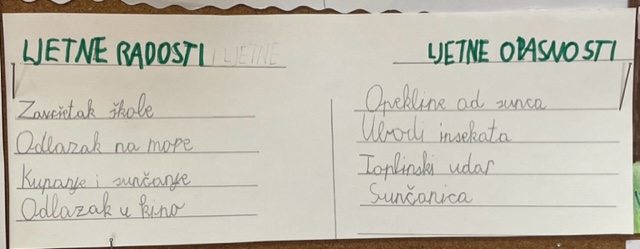 LJETNE RADOSTI I LJETNE
Završetak škole
Odlazak na more
Kupanje i sunčanje
Odlazak u kino
LJETNE OPASNOSTI
Opekline od sunca
Ubodi insekata
Toplinski udar
Sunčanica